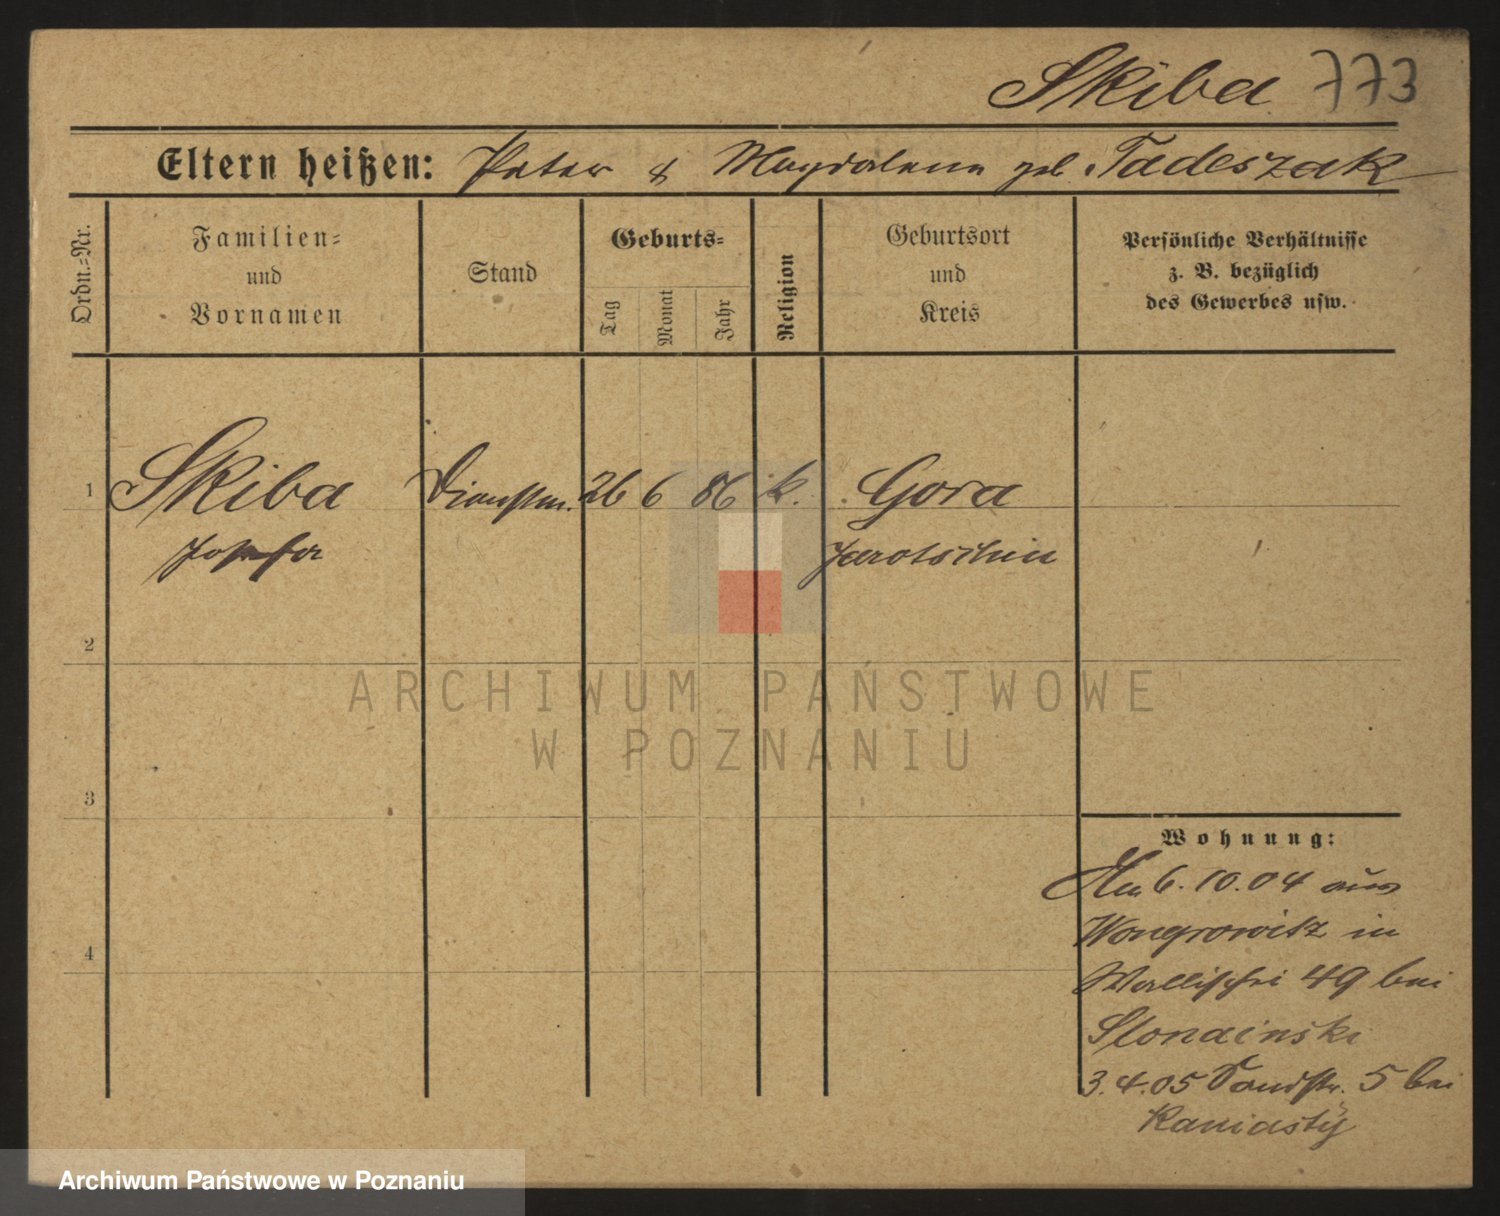 Skiba 773
Eltern heißen: Peter & Magdalena geb. Tadeszak
Ordn.-Nr.
Familien-
und
Vornamen
Stand
Geburts-
Tag
Monat
Jahr
Religion
Geburtsort
und
Kreis
Persönliche Verhältnisse
z. B. bezüglich
des Gewerbes usw.
1 Skiba Dienstm. 26 6 86 k. Gora
Josefa Jarotschin
2
3
4
ARCHIWUM PAŃSTWOWE
W POZNANIU
Wohnung:
6.10.04 aus
Wongrowitz in
Wallischei 49 bei
Slondinski
3.4.05 Sandstr. 5 bei
Kaniasty
Archiwum Państwowe w Poznaniu